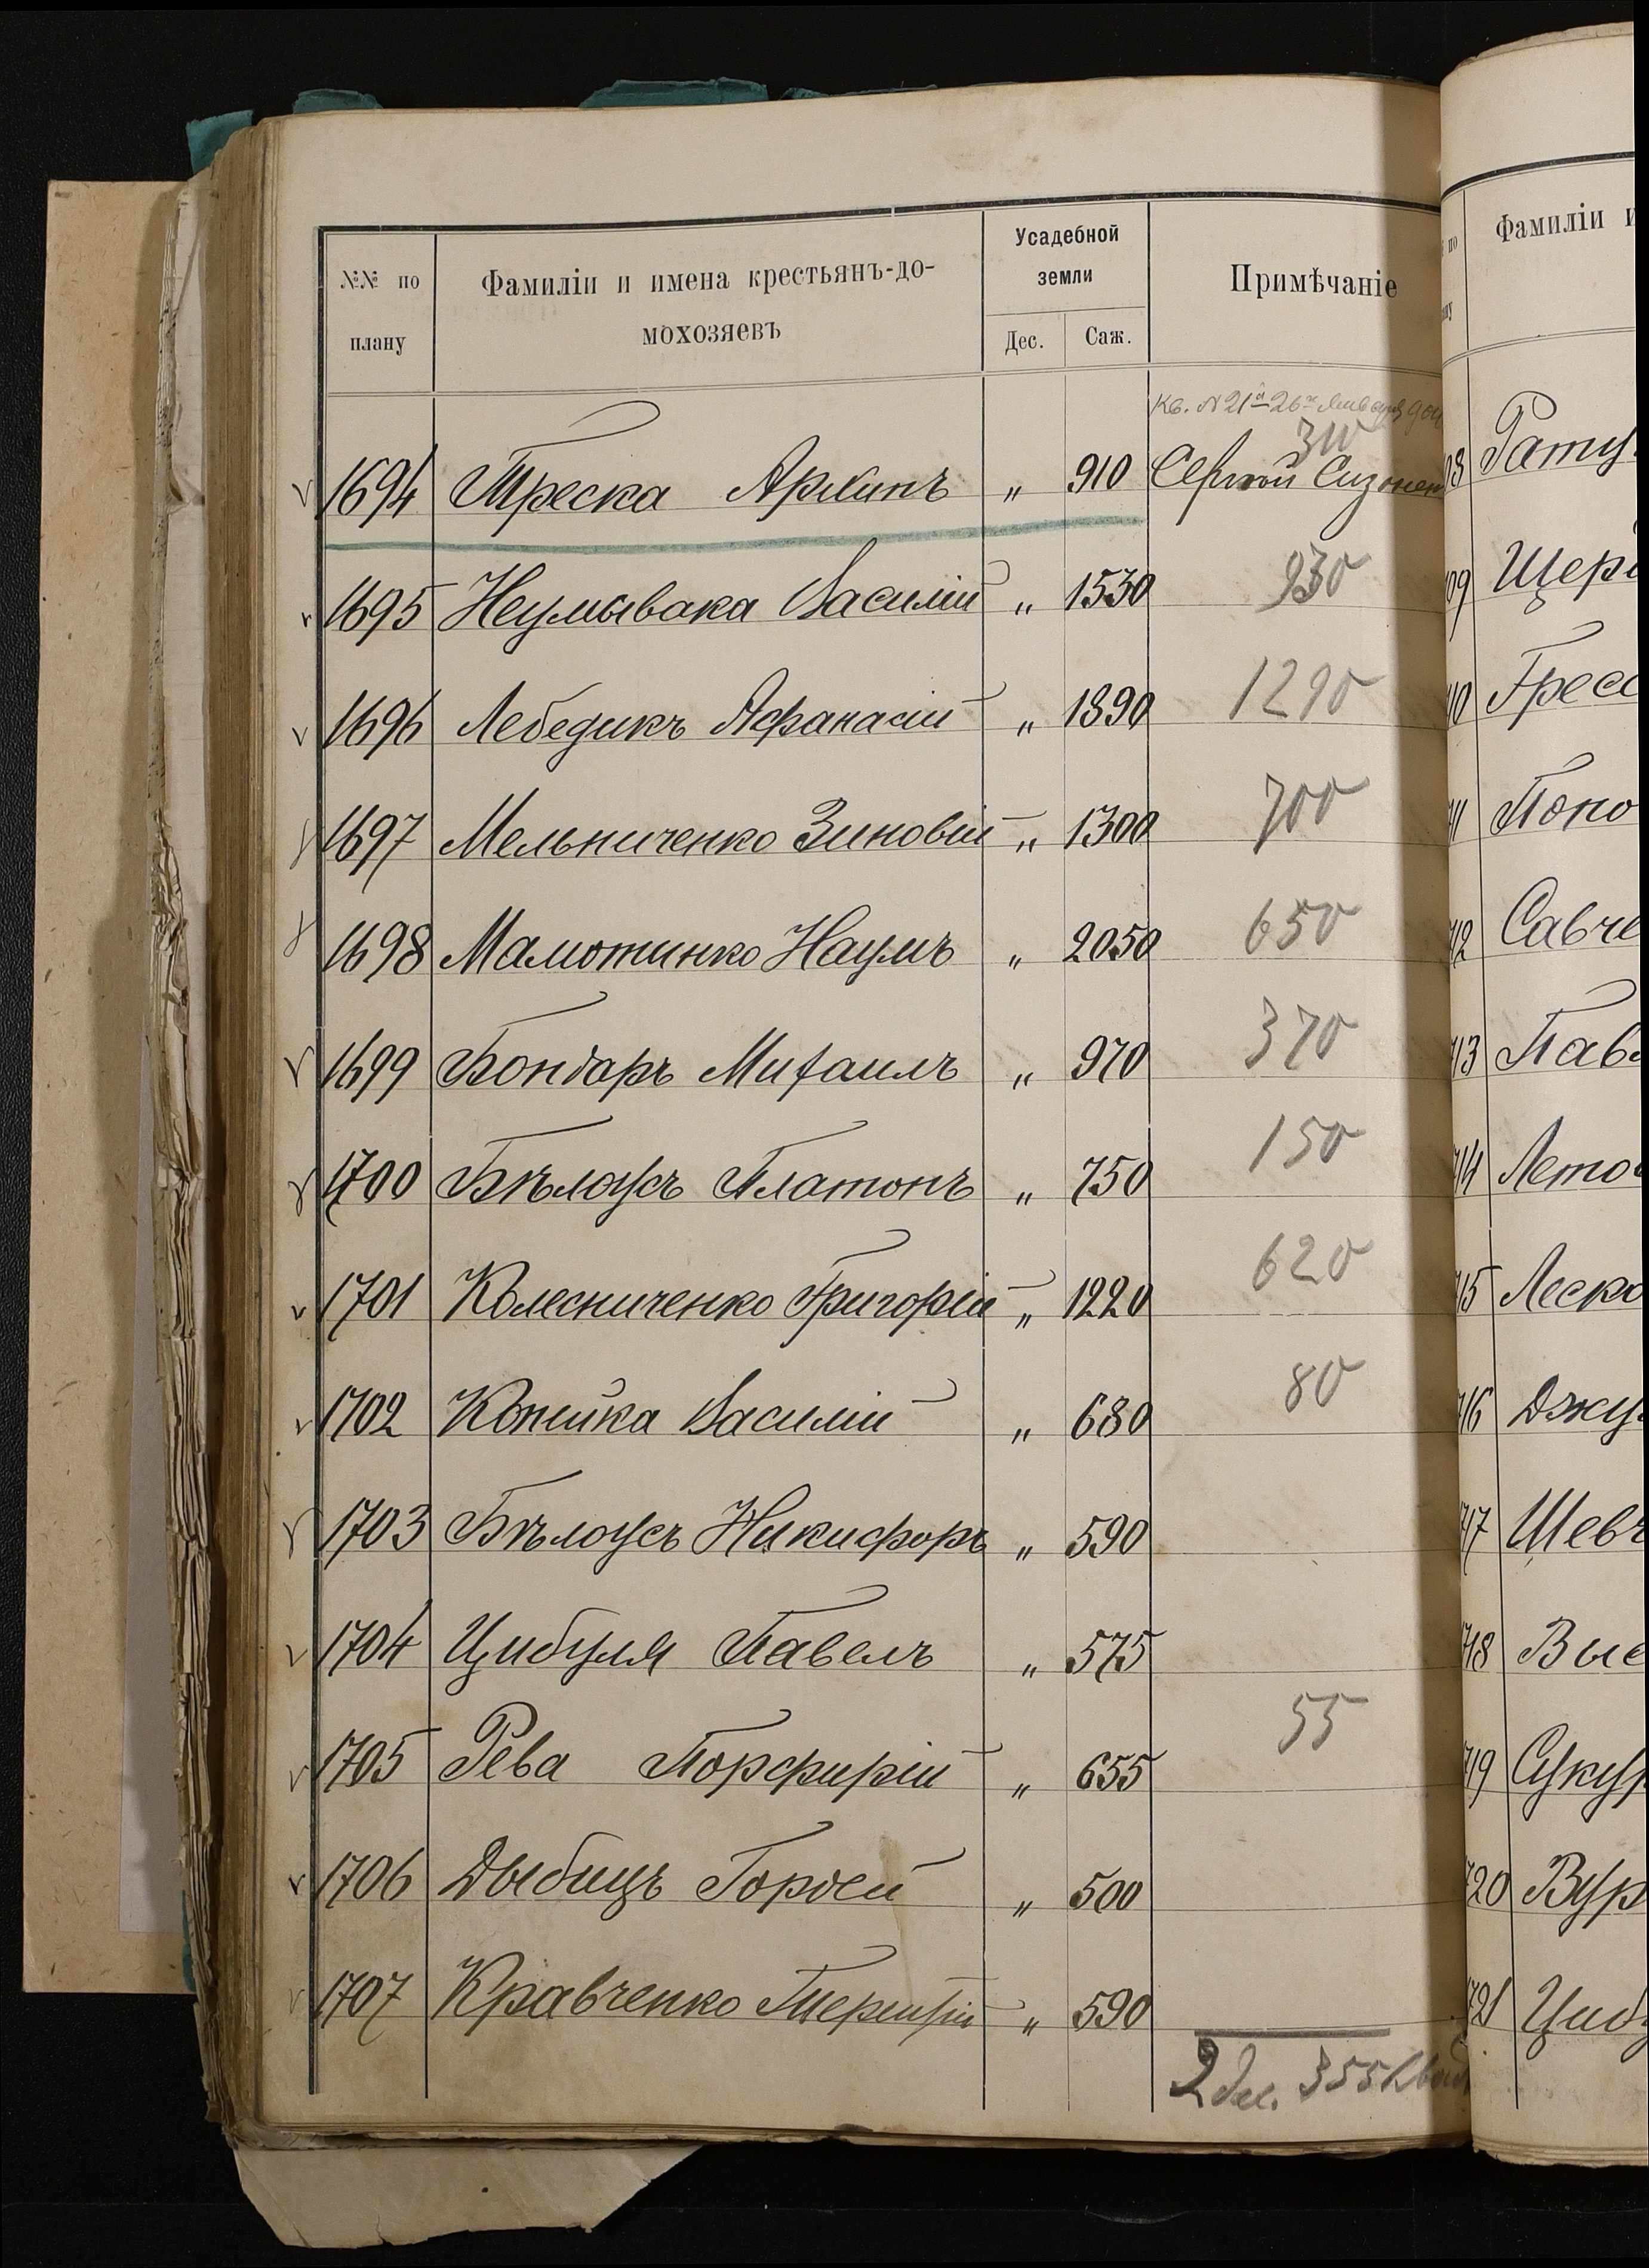 №№ по плану
Фамиліи и имена крестьянъ-до-
мохозяевъ
Усадебной
земли
Дес. Саж.
Примѣчаніе
Кв. N 21 26 Января
310
1694 Треска Архипъ „ 910 Сергѣй
1695 Неумывака Василій „ 1530 930
1696 Лебедикъ Афанасій „ 1890 1290
1697 Мельниченко Зиновій „ 1300 700
1698 Мамотинко Наумъ „ 2050 650
1699 Бондарь Михаилъ „ 970 370
1700 Бѣлоусъ Платонъ „ 750 150
1701 Колесниченко Григорій „ 1220 620
1702 Копѣйка Василій „ 680 80
1703 Бѣлоусъ Никифоръ „ 590
1704 Цибуля Павелъ „ 575
1705 Рева Порфирій „ 655 55
1706 Дыбицъ Гордей „ 500
1707 Кравченко „ 590
2 дес. 355 квад
Фамиліи и
08 Рату
09 Щер
10 Гресс
11 Поно
12 Савче
13 Пав
14 Лето
15 Леско
16 Джу
17 Шевч
18 Выс
19 Сукур
20 Бур
21 Циб